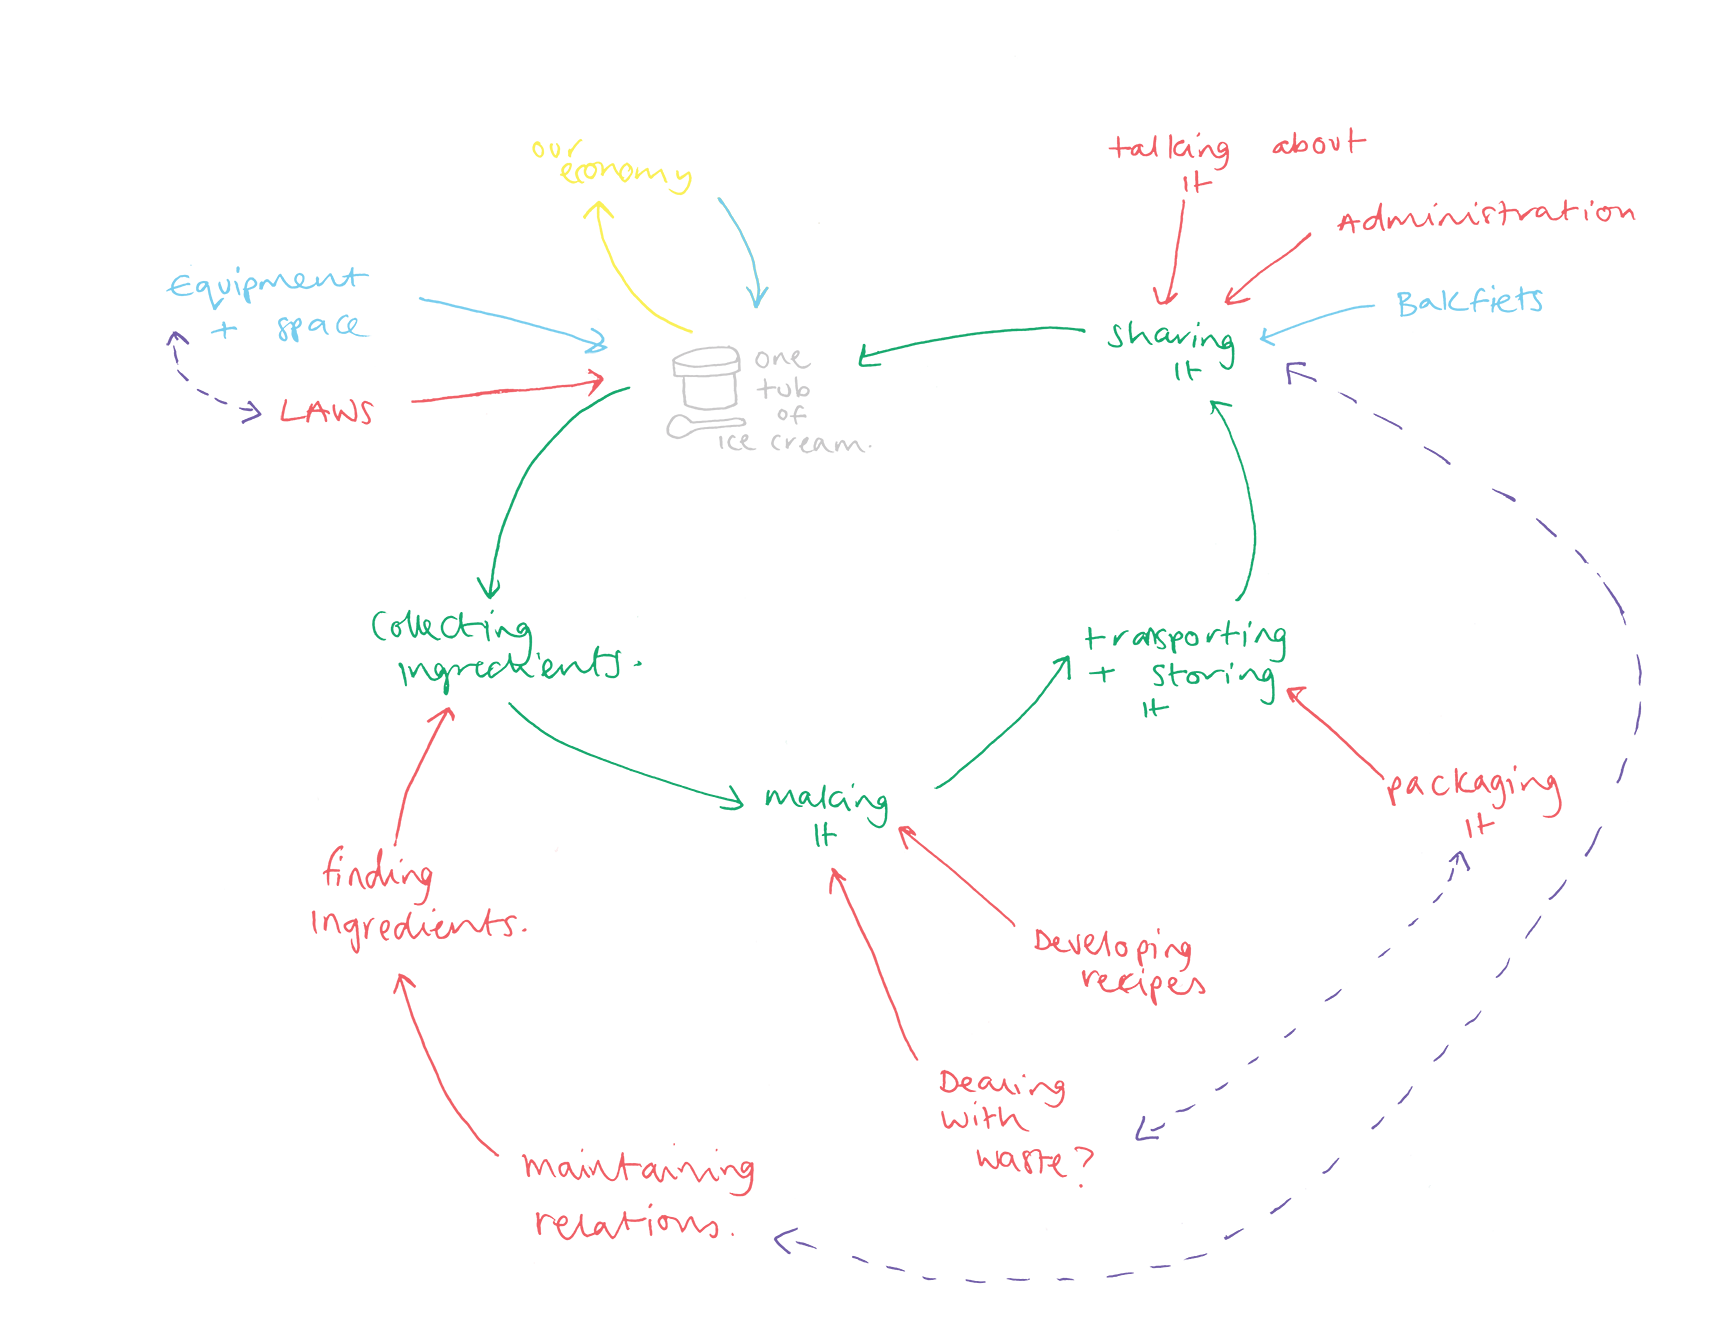 our
economy
talking about
It
Administration
Equipment
+ space
Bakfiets
sharing
It
LAWS
one
tub
of
ice cream.
Collecting
ingredients.
transporting
+ storing
It
making
It
packaging
It
finding
Ingredients.
Developing
recipes
Dealing
with
waste?
maintaining
relations.